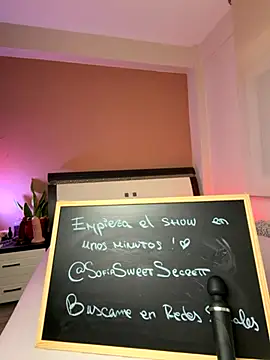 Empieza el show en
unos minutos !♡
@SofiaSweetSecrett
Buscame en Redes